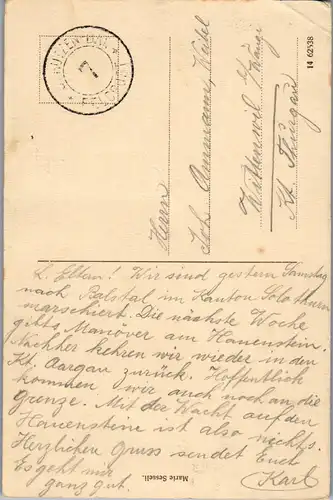 14 62538
Herrn
Joh.
Wittenwil b/
Kt. Thurgau
L. Eltern! Wir sind gestern Samstag
nach Balstal im Kanton Solothurn
marschiert. Die nächste Woche
gibts Manöver am Hauenstein.
Nachher kehren wir wieder in den
Kt Aargau zurück. Hoffentlich
kommen wir auch noch an die
Grenze. Mit der Wacht auf den
Hauensteine ist also nichts.
Herzlichen Gruss sendet Euch
Es geht mir Karl
ganz gut.
Marie Sesseli.